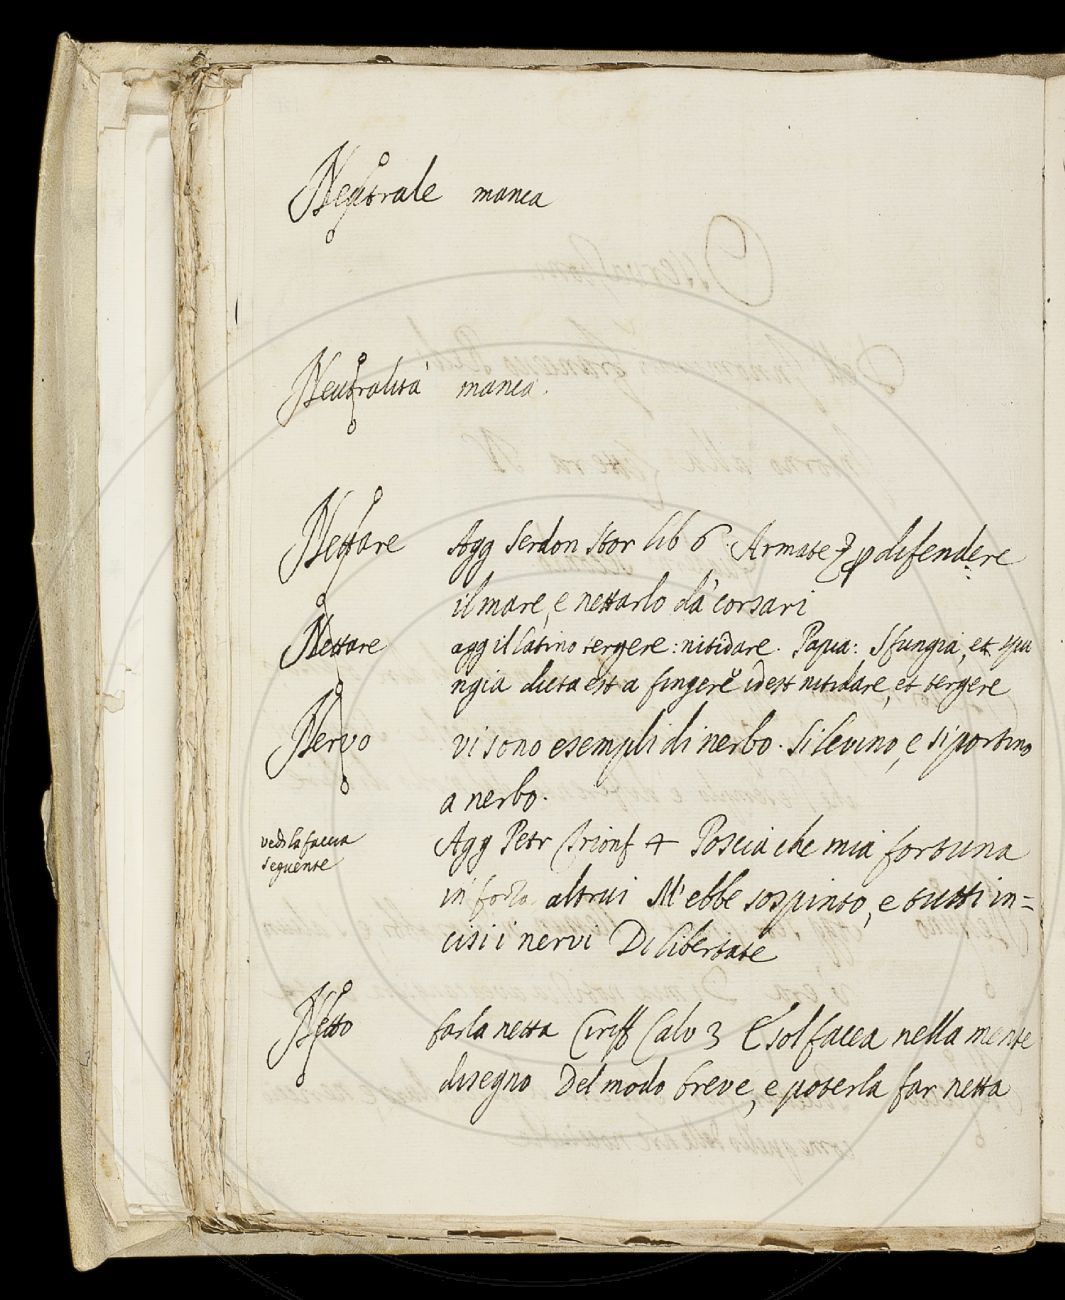 Neutrale manca
Neutralità manca.
Nettare Agg Serdon Stor lib 6 Armate p difendere
il mare, e nettarlo da' corsari
Nettare agg il latino tergere: nitidare. Papia: Sfungia, et spu
ngia dicta est a fingere idest nitidare, et tergere
Nervo vi sono esempli di nerbo. Si levino, e si portino
a nerbo.
vedi la faccia Agg Petr Trionf 4 Poscia che mia fortuna
seguente in forza altrui M'ebbe sospinto, e tutti in=
cisi i nervi Di libertate
Netto farla netta Ciriff Calv 3 E sol facea nella mente
disegno Del modo breve, e poterla far netta